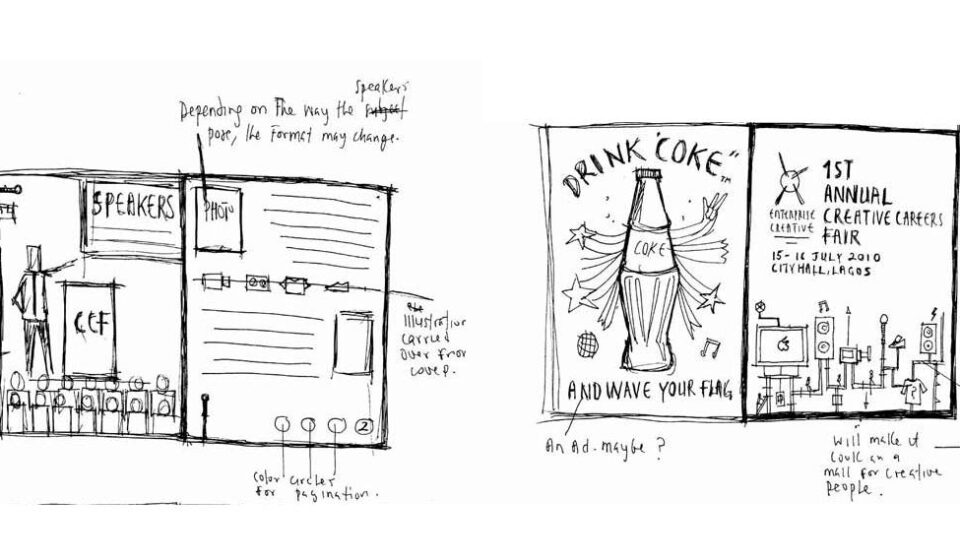 Speakers
Depending on The way the subject
pose, the format may change.
SPEAKERS
CCF
PHOTO
Illustration
carried
over from
cover.
2
color circles
for pagination.
DRINK 'COKE"™
COKE
AND WAVE YOUR FLAG
An Ad. maybe ?
ENTERPRISE
CREATIVE
1ST
ANNUAL
CREATIVE CAREERS
FAIR
15-16 JULY 2010
CITY HALL, LAGOS
will make it
look
mall for creative
people.